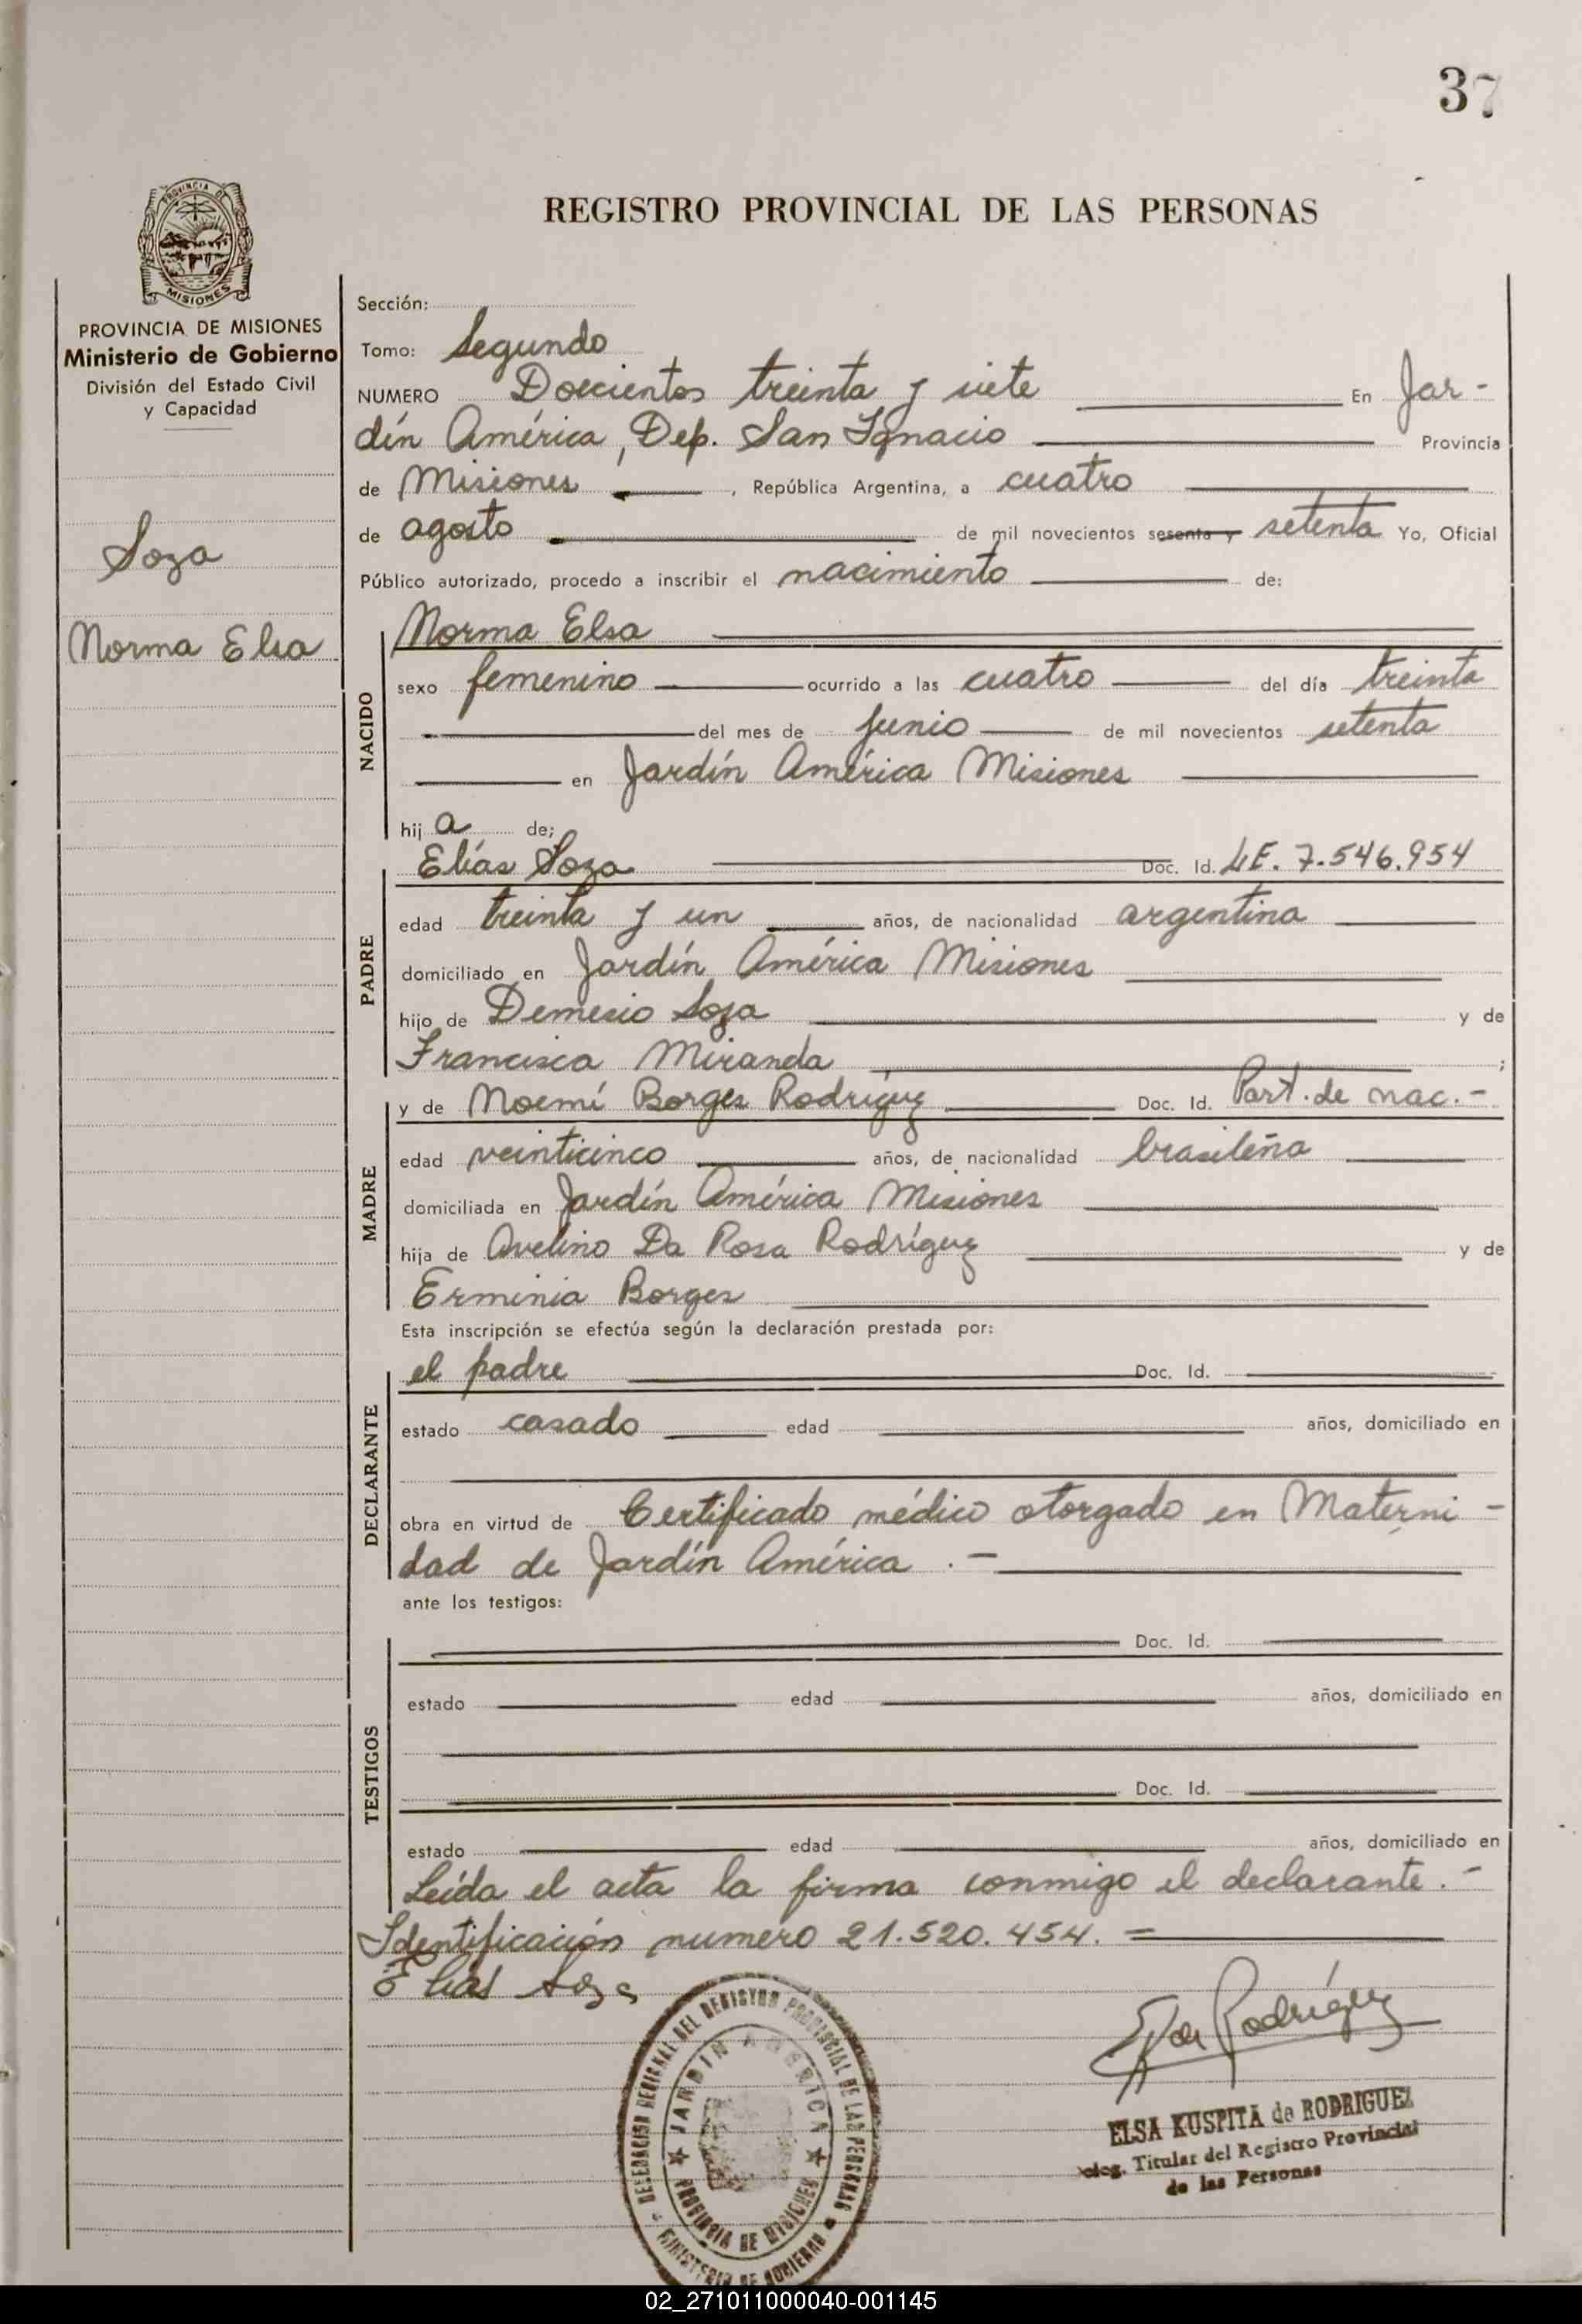 37
REGISTRO PROVINCIAL DE LAS PERSONAS
PROVINCIA DE MISIONES
MISIONES
PROVINCIA DE MISIONES
Ministerio de Gobierno
División del Estado Civil
y Capacidad
Soza
Norma Elsa
Sección:
Tomo: Segundo
NUMERO Doscientos treinta y siete En Jar-
dín América, Dep. San Ignacio Provincia
de Misiones , República Argentina, a cuatro
de agosto de mil novecientos sesenta y setenta Yo, Oficial
Público autorizado, procedo a inscribir el nacimiento de:
NACIDO
Norma Elsa
sexo femenino ocurrido a las cuatro del día treinta
del mes de junio de mil novecientos setenta
en Jardín América Misiones
hij a de;
PADRE
Elías Soza Doc. Id. LE. 7.546.954
edad treinta y un años, de nacionalidad argentina
domiciliado en Jardín América Misiones
hijo de Demesio Soza y de
Francisca Miranda ;
MADRE
y de Noemí Borges Rodríguez Doc. Id. Part. de nac.-
edad veinticinco años, de nacionalidad brasileña
domiciliada en Jardín América Misiones
hija de Avelino Da Rosa Rodríguez y de
Erminia Borges
Esta inscripción se efectúa según la declaración prestada por:
DECLARANTE
el padre Doc. Id.
estado casado edad años, domiciliado en
obra en virtud de Certificado médico otorgado en Materni-
dad de Jardín América .-
ante los testigos:
TESTIGOS
Doc. Id.
estado edad años, domiciliado en
Doc. Id.
estado edad años, domiciliado en
Leída el acta la firma conmigo el declarante.-
Identificación numero 21.520.454. =
Elías Soza
DELEGACION REGIONAL DEL REGISTRO PROVINCIAL DE LAS PERSONAS
JARDIN AMERICA
PROVINCIA DE MISIONES
MINISTERIO DE GOBIERNO
E K de Rodríguez
ELSA KUSPITA de RODRIGUEZ
Deleg. Titular del Registro Provincial
de las Personas
02_271011000040-001145